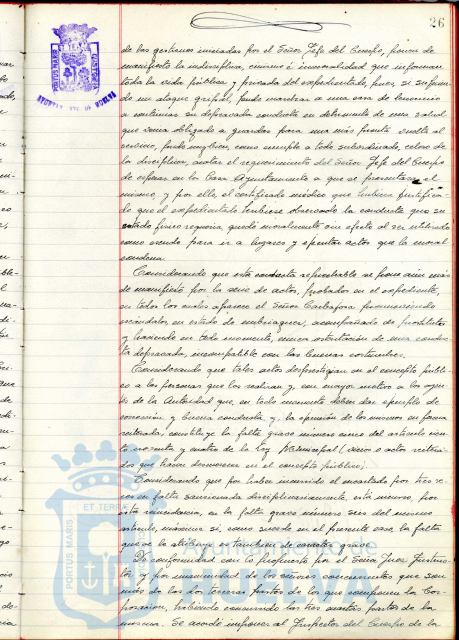 26
de las gestiones iniciadas por el Señor Jefe del Cuerpo, ponen de
manifiesto la indisciplina, cinismo é inmoralidad que informan
toda la vida pública y privada del expedientado, pues, si sufrien
de un ataque gripal, pudo marchar a una casa de lenocinio
a continuar su depravada conducta en detrimento de una salud
que venía obligado a guardar para una más pronta vuelta al
servicio, pudo también, como cumple a todo subordinado, celoso de
la disciplina, acatar el requerimiento del Señor Jefe del Cuerpo
de esperar en la Casa Ayuntamiento a que se presentase el
mismo, y por ello, el certificado médico que hubiera justifica-
do que el expedientado tuviese observando la conducta que su
estado físico requería, queda moralmente sin efecto al ser utilizado
como escudo para ir a lugares y ejecutar actos que la moral
condena.
Considerando que esta conducta reprobable se pone aún más
de manifiesto por la serie de actos, probados en el expediente,
en todos los cuales aparece el Señor promoviendo
escándalos, en estado de embriaguez, acompañado de prostitutas
y haciendo en todo momento, una ostentación de una conduc-
ta depravada, incompatible con las buenas costumbres.
Considerando que tales actos desprestigian en el concepto públi-
co a las personas que los realizan y, con mayor motivo a los agen-
tes de la Autoridad que, en todo momento deben dar ejemplo de
corrección y buena conducta y, la ejecución de los mismos en forma
reiterada, constituye la falta grave número cinco del artículo cien-
to noventa y cuatro de la Ley Municipal (vicios o actos reitera-
dos que hacen desmerecer en el concepto público).
Considerando que por haber incurrido el encartado por tres ve-
ces en falta sancionada disciplinariamente, está incurso, por
esta reincidencia, en la falta grave número seis del mismo
artículo, máxime si, como sucede en el presente caso la falta
que se le atribuye es también de carácter grave.
De conformidad con lo propuesto por el Señor Juez Instruc-
tor, y por unanimidad de los señores concurrentes que son
más de las dos terceras partes de los que componen la Cor-
poración, habiendo concurrido las tres cuartas partes de la
misma. Se acordó imponer al Inspector del Cuerpo de la
PORTUS MARIS ET TERRAE
Ayuntamiento de